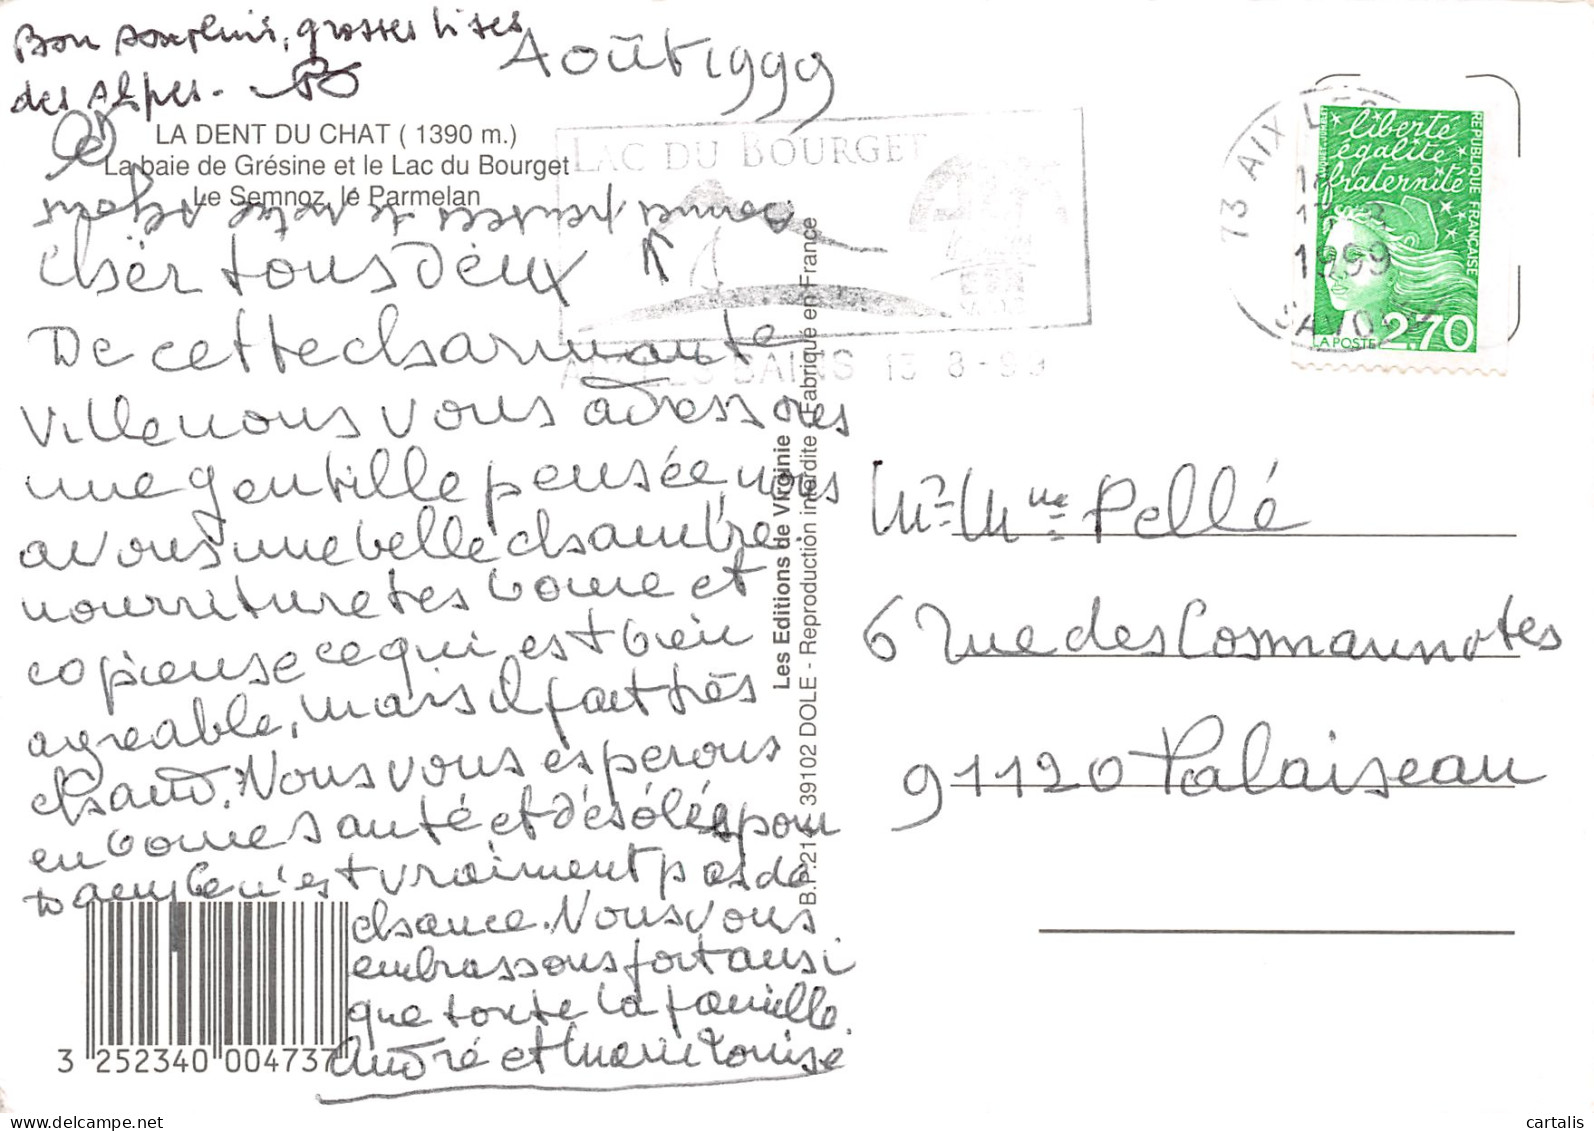 Bon souvenir, grosses bises
des Alpes.
Août 1999
LA DENT DU CHAT ( 1390 m.)
La baie de Grésine et le Lac du Bourget
Le Semnoz, le Parmelan
bonnes pensées de votre séjour
Cher tous deux
De cette charmante
ville nous vous adressons
une gentille pensée, nous
avons une belle chambre
nourriture très bonne et
copieuse ce qui est bien
agréable, mais il fait très
chaud. Nous vous espérons
en bonne santé et désolés pour
n'est vraiment pas de
chance. Nous vous
embrassons fort ainsi
que toute la famille
André et Marie Louise
3 252340 004737
Les Editions de Virginie
B.P.214 39102 DOLE - Reproduction interdite Fabriqué en France
LAC DU BOURGET
AIX LES BAINS 13 8 - 99
73 AIX LES
1999
SAVOIE
liberté
égalité
fraternité
RÉPUBLIQUE FRANÇAISE
LA POSTE 2,70
Mr Mme Pellé
6 rue des Cosmaunotes
91120 Palaiseau
delcampe.net
cartalis